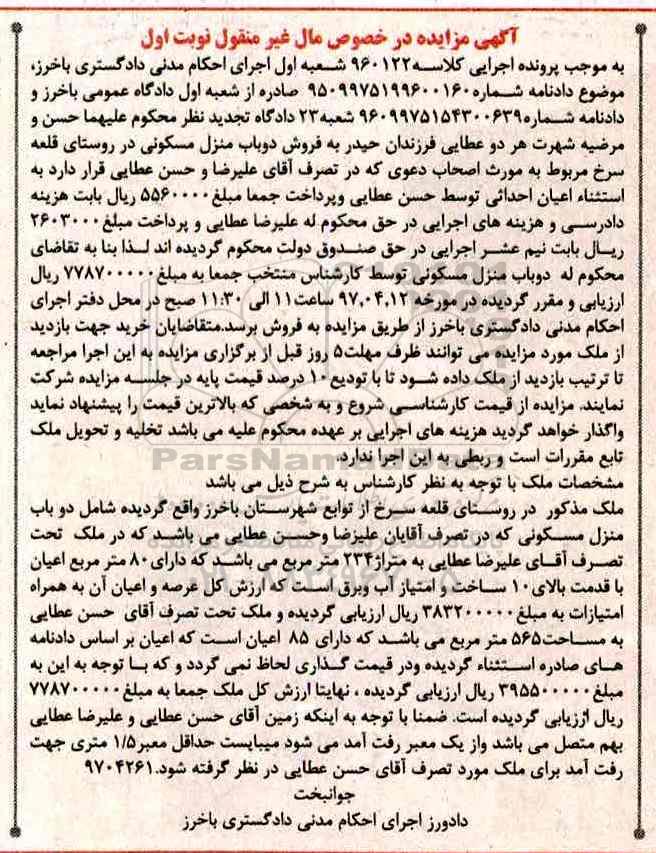 آگهی مزایده در خصوص مال غیر منقول نوبت اول
به موجب پرونده اجرایی کلاسه۹۶۰۱۲۲ شعبه اول اجرای احکام مدنی دادگستری باخرز،
موضوع دادنامه شماره۹۵۰۹۹۷۵۱۹۹۶۰۰۱۶۰ صادره از شعبه اول دادگاه عمومی باخرز و
دادنامه شماره۹۶۰۹۹۷۵۱۵۴۳۰۰۶۳۹ شعبه۲۳ دادگاه تجدید نظر محکوم علیهما حسن و
مرضیه شهرت هر دو عطایی فرزندان حیدر به فروش دوباب منزل مسکونی در روستای قلعه
سرخ مربوط به مورث اصحاب دعوی که در تصرف آقای علیرضا و حسن عطایی قرار دارد به
استثناء اعیان احداثی توسط حسن عطایی وپرداخت جمعا مبلغ۵۵۶۰۰۰۰ ریال بابت هزینه
دادرسی و هزینه های اجرایی در حق محکوم له علیرضا عطایی و پرداخت مبلغ۲۶۰۳۰۰۰
ریال بابت نیم عشر اجرایی در حق صندوق دولت محکوم گردیده اند لذا بنا به تقاضای
محکوم له دوباب منزل مسکونی توسط کارشناس منتخب جمعا به مبلغ۷۷۸۷۰۰۰۰۰ ریال
ارزیابی و مقرر گردیده در مورخه ۹۷,۰۴,۱۲ ساعت۱۱ الی ۱۱:۳۰ صبح در محل دفتر اجرای
احکام مدنی دادگستری باخرز از طریق مزایده به فروش برسد.متقاضایان خرید جهت بازدید
از ملک مورد مزایده می توانند ظرف مهلت۵ روز قبل از برگزاری مزایده به این اجرا مراجعه
تا ترتیب بازدید از ملک داده شود تا با تودیع۱۰ درصد قیمت پایه در جلسه مزایده شرکت
نمایند. مزایده از قیمت کارشناسی شروع و به شخصی که بالاترین قیمت را پیشنهاد نماید
واگذار خواهد گردید هزینه های اجرایی بر عهده محکوم علیه می باشد تخلیه و تحویل ملک
تابع مقررات است و ربطی به این اجرا ندارد.
مشخصات ملک با توجه به نظر کارشناس به شرح ذیل می باشد
ملک مذکور در روستای قلعه سرخ از توابع شهرستان باخرز واقع گردیده شامل دو باب
منزل مسکونی که در تصرف آقایان علیرضا وحسن عطایی می باشد که در ملک تحت
تصرف آقای علیرضا عطایی به متراژ۲۳۴ متر مربع می باشد که دارای۸۰ متر مربع اعیان
با قدمت بالای۱۰ ساخت و امتیاز آب وبرق است که ارزش کل عرصه و اعیان آن به همراه
امتیازات به مبلغ۳۸۳۲۰۰۰۰۰ ریال ارزیابی گردیده و ملک تحت تصرف آقای حسن عطایی
به مساحت۵۶۵ متر مربع می باشد که دارای ۸۵ اعیان است که اعیان بر اساس دادنامه
های صادره استثناء گردیده ودر قیمت گذاری لحاظ نمی گردد و که با توجه به این به
مبلغ۳۹۵۵۰۰۰۰۰ ریال ارزیابی گردیده ، نهایتا ارزش کل ملک جمعا به مبلغ۷۷۸۷۰۰۰۰۰
ریال ارزیابی گردیده است. ضمنا با توجه به اینکه زمین آقای حسن عطایی و علیرضا عطایی
بهم متصل می باشد واز یک معبر رفت آمد می شود میبایست حداقل معبر۱/۵ متری جهت
رفت آمد برای ملک مورد تصرف آقای حسن عطایی در نظر گرفته شود.۹۷۰۴۲۶۱
جوانبخت
دادورز اجرای احکام مدنی دادگستری باخرز
ParsNamadData